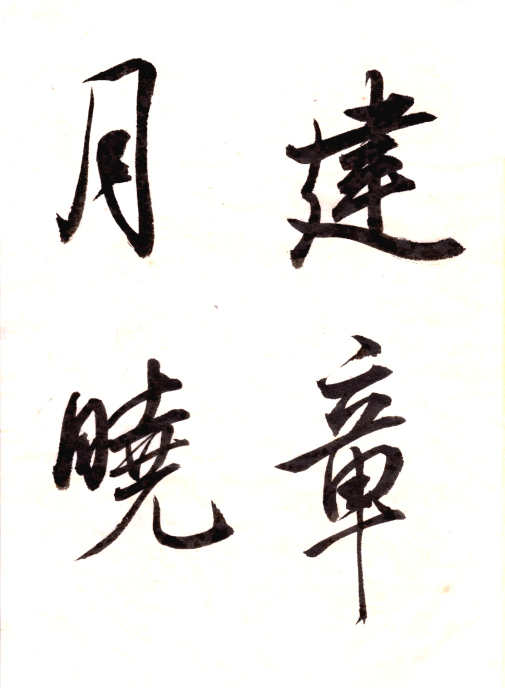 建章
月曉